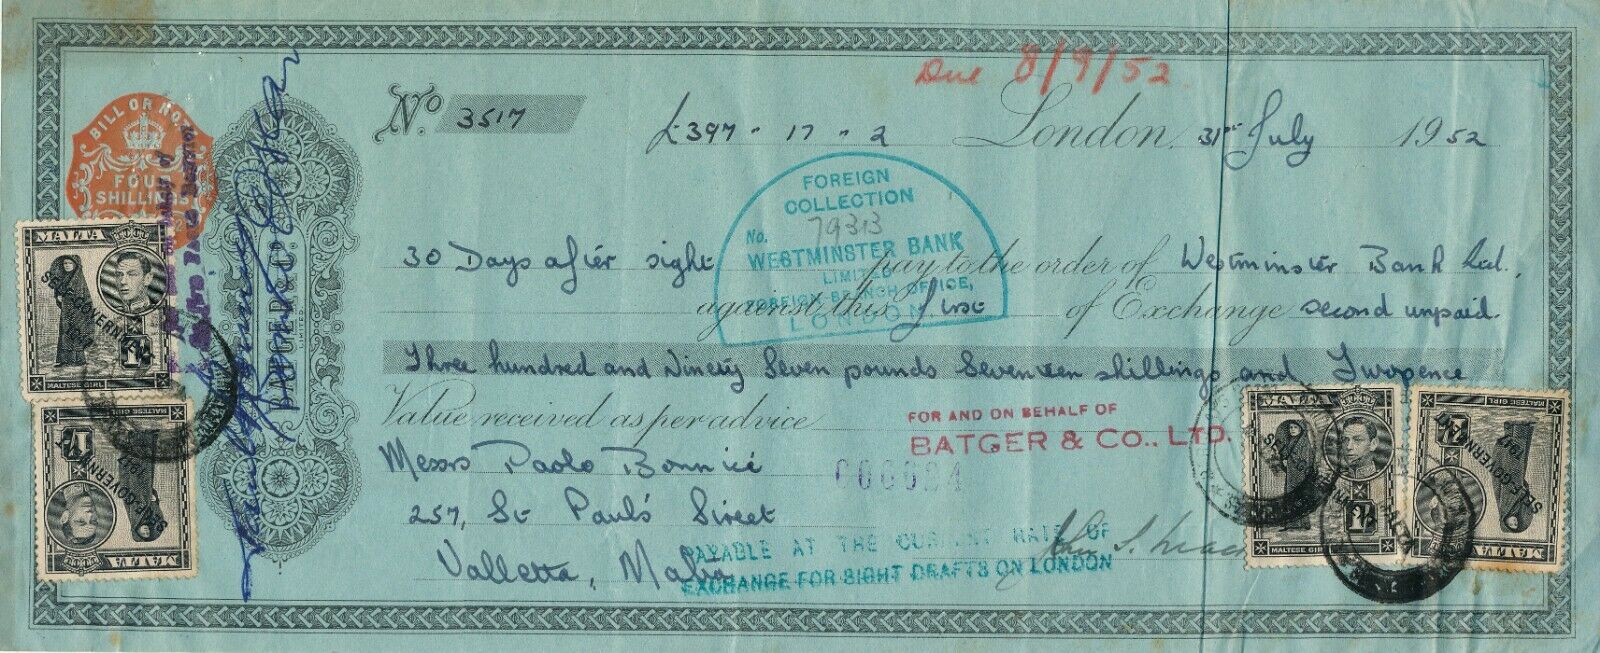 Due 8/9/52
No. 3517
£397 - 17 - 2 London, 31st July 1952
BILL OR NOTE
FOUR
SHILLINGS
FOREIGN
COLLECTION
No. 79313
WESTMINSTER BANK
LIMITED
FOREIGN BRANCH OFFICE,
LONDON
30 Days after sight pay to the order of Westminster Bank Ltd.,
against this first of Exchange second unpaid.
Three hundred and Ninety Seven pounds Seventeen shillings and Twopence
Value received as per advice
FOR AND ON BEHALF OF
BATGER & CO., LTD.
Messrs Paolo Bonnici
257, St Paul's Street
Valletta, Malta
PAYABLE AT THE CURRENT RATE OF
EXCHANGE FOR SIGHT DRAFTS ON LONDON
BATGER & CO.
LIMITED.
MALTA
SELF-GOVERNMENT
1947
MALTESE GIRL
MALTA
SELF-GOVERNMENT
1947
MALTESE GIRL
MALTA
SELF-GOVERNMENT
1947
MALTESE GIRL
MALTA
SELF-GOVERNMENT
1947
MALTESE GIRL